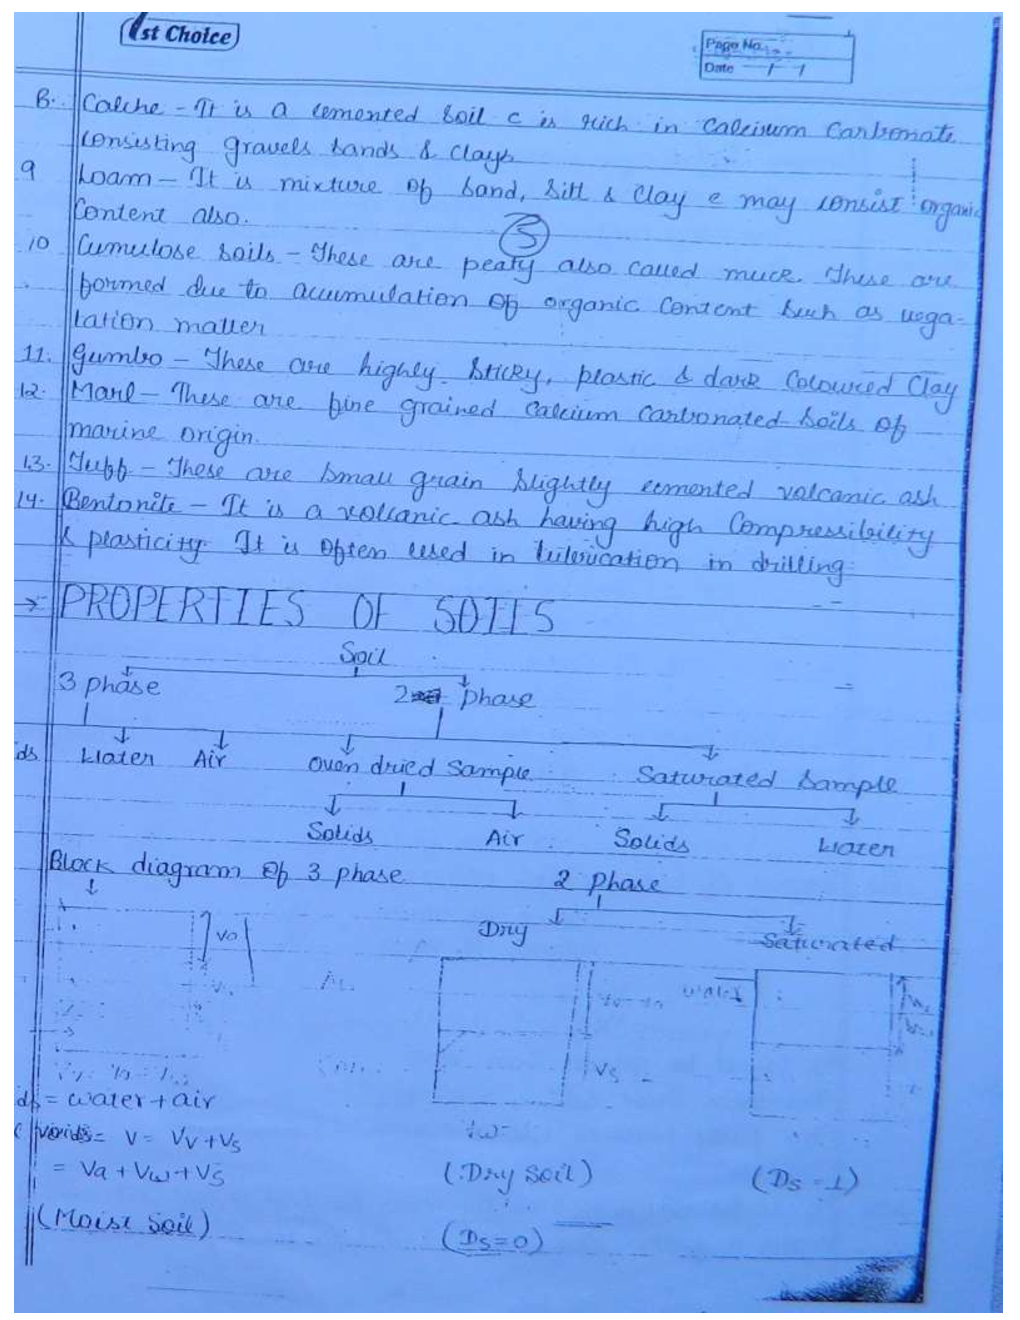 1st Choice
Page No.
Date
8. Caliche - It is a cemented soil c is rich in Calcium Carbonate
consisting gravels sands & clays
9 Loam - It is mixture of sand, silt & clay c may consist organic
Content also.
5
10 Cumulose soils - These are peaty also called muck. These are
formed due to accumulation of organic content such as vega-
tation matter
11. Gumbo - These are highly sticky, plastic & dark Coloured Clay
12. Marl - These are fine grained Calcium Carbonated soils of
marine origin.
13. Tuff - These are small grain slightly cemented volcanic ash
14. Bentonite - It is a volcanic ash having high Compressibility
& plasticity It is often used in lubrication in drilling
→ PROPERTIES OF SOILS
Soil
3 phase 2 phase
ds Water Air Oven dried sample Saturated sample
Solids Air Solids Water
Block diagram of 3 phase 2 phase
Dry Saturated
Va
water
Vs
= water + air
voids = V = Vv + Vs
= Va + Vw + Vs (Dry soil) (Ds = 1)
(Moist soil) (Ds = 0)